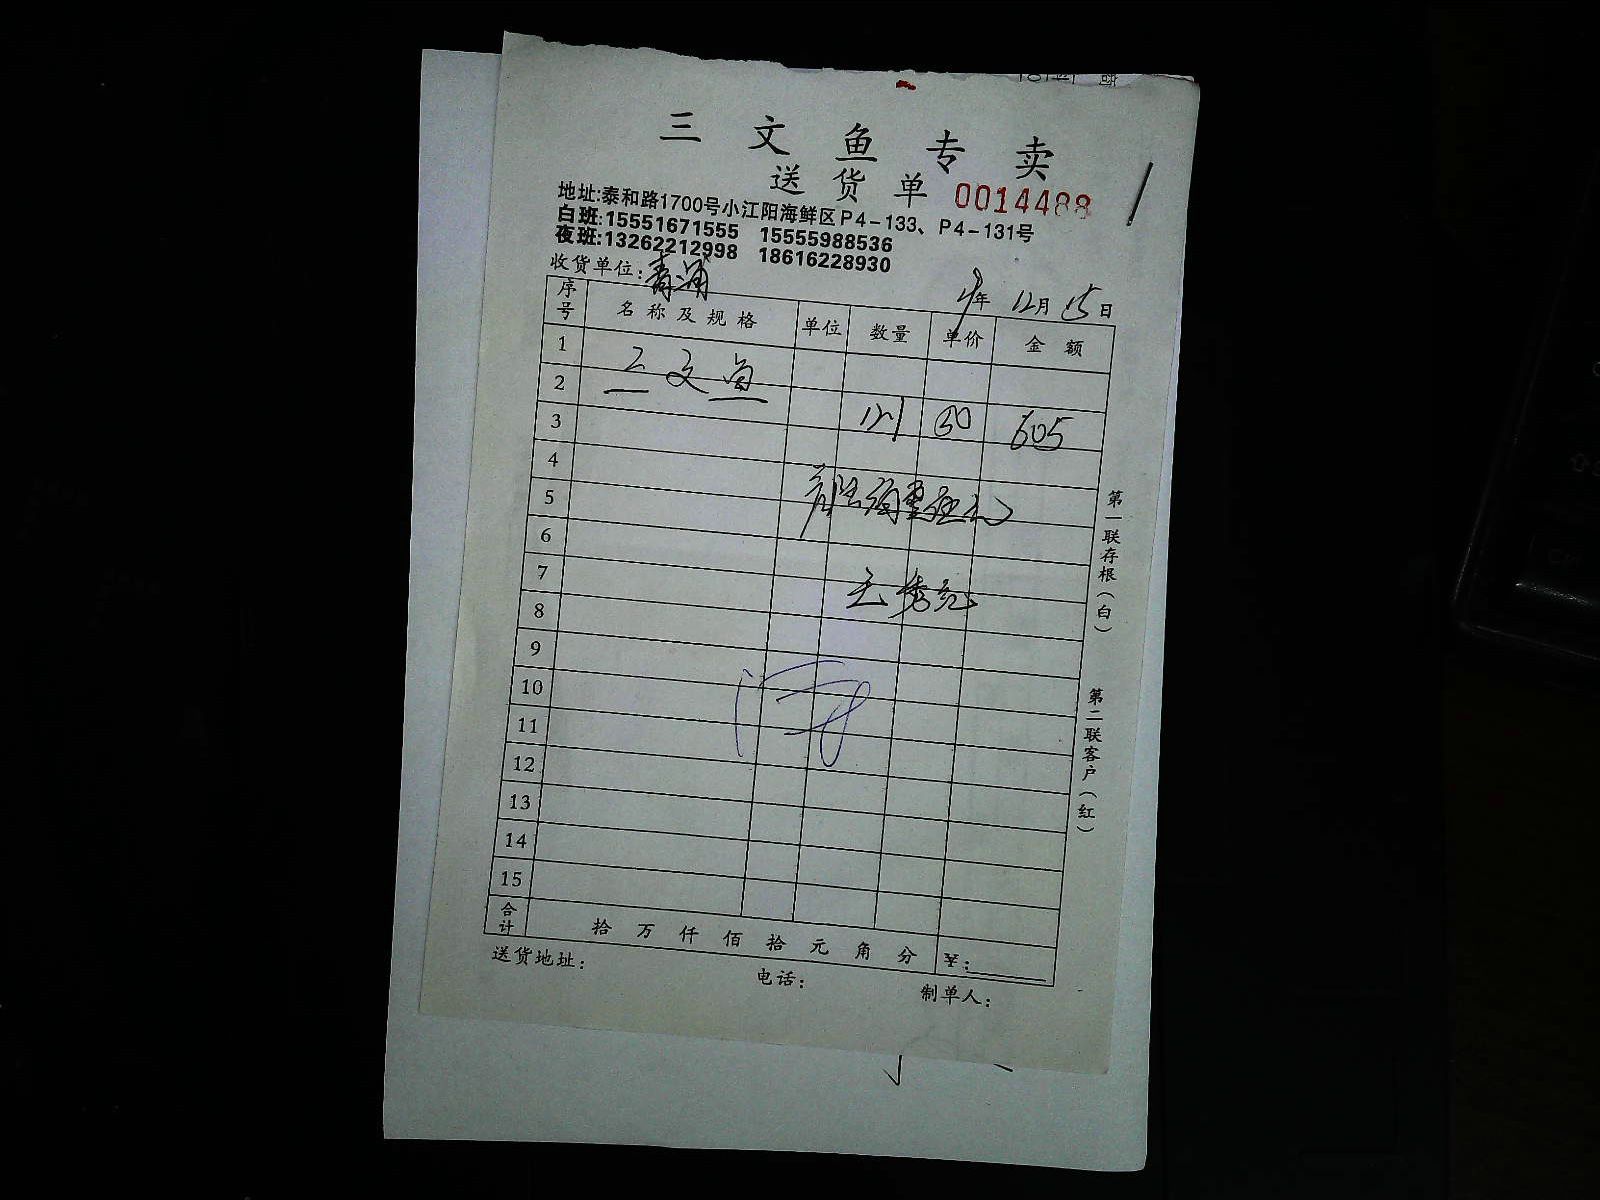 三文鱼专卖
送货单 0014488
地址:泰和路1700号小江阳海鲜区P4-133、P4-131号
白班:15551671555 15555988536
夜班:13262212998 18616228930
收货单位:青浦
年 12月 15日
序号 名称及规格 单位 数量 单价 金额
1
三文鱼
2
605
3
4
5
6
7
8
9
10
11
12
13
14
15
合计 拾 万 仟 佰 拾 元 角 分 ¥:
送货地址: 电话: 制单人:
第一联存根(白)
第二联客户(红)